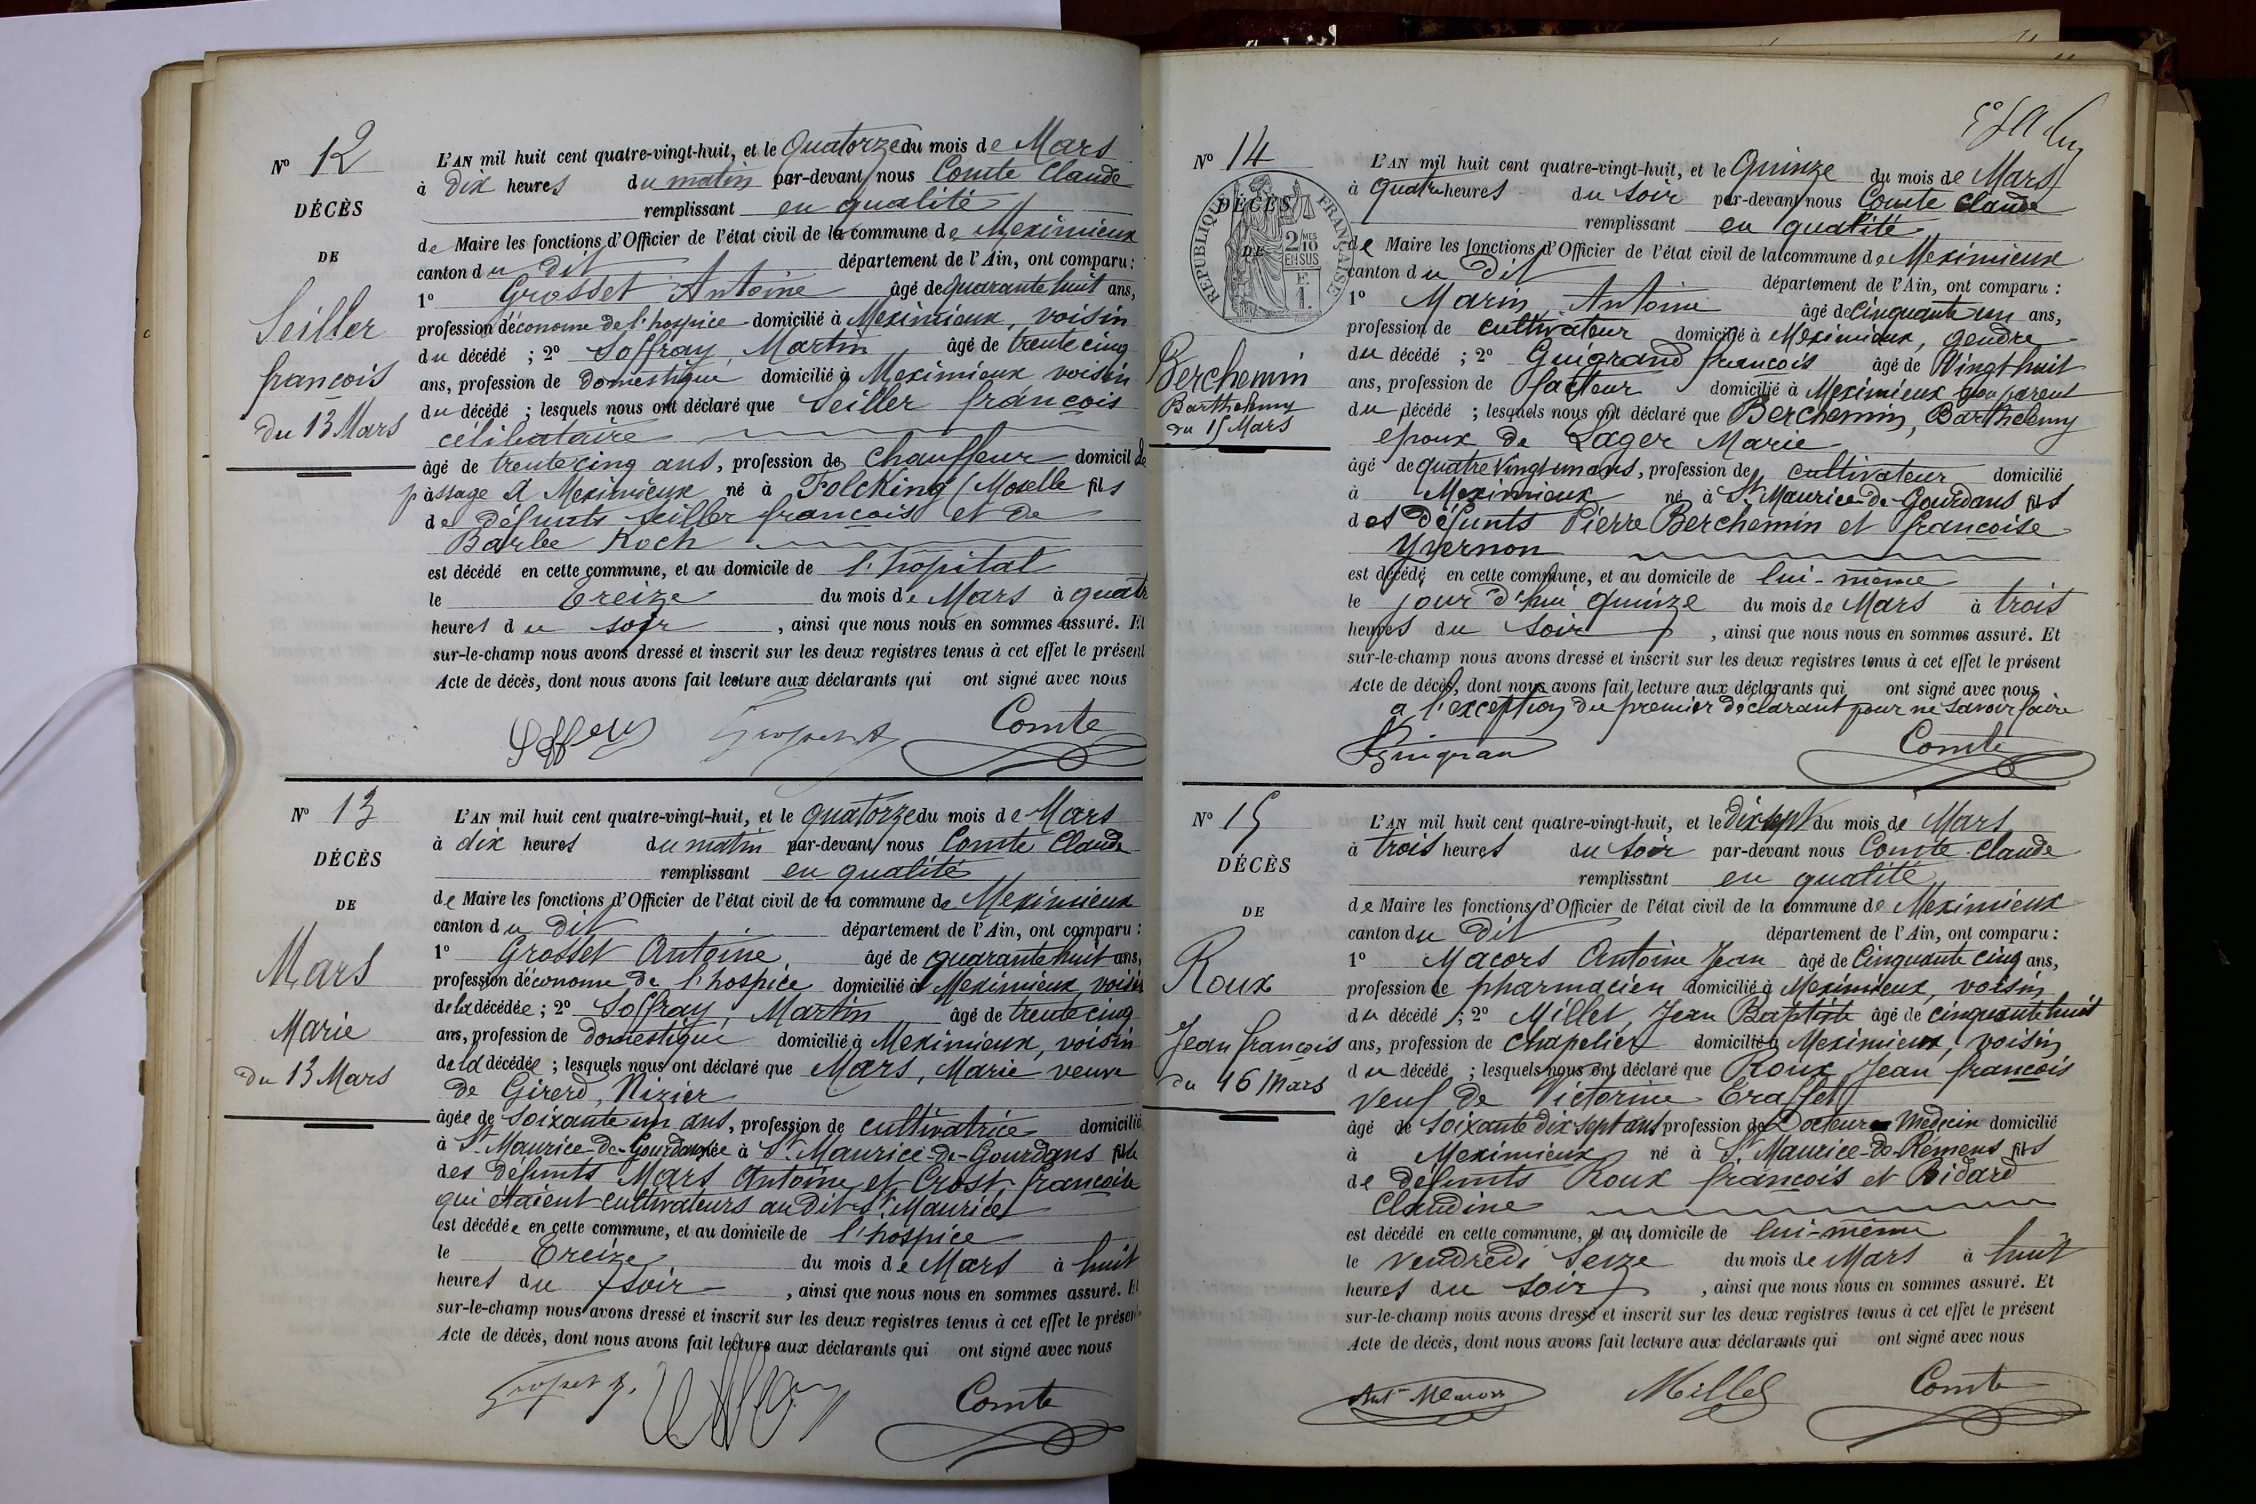 N° 12
DÉCÈS
DE
Seiller
françois
du 13 Mars
L'AN mil huit cent quatre-vingt-huit, et le Quatorze du mois de Mars
à dix heures du matin par-devant nous Comte Claude
remplissant en qualité
de Maire les fonctions d'Officier de l'état civil de la commune de Meximieux
canton du dit département de l'Ain, ont comparu :
1° Grosset Antoine âgé de quarante huit ans,
profession d'économe de l'hospice domicilié à Meximieux, voisin
du décédé ; 2° Soffray, Martin âgé de trente cinq
ans, profession de domestique domicilié à Meximieux voisin
du décédé ; lesquels nous ont déclaré que Seiller françois
célibataire
âgé de trente cinq ans, profession de Chauffeur domicilié de
passage à Meximieux né à Folcking (Moselle fils
de défunts Seiller françois et de
Barbe Koch
est décédé en cette commune, et au domicile de l'hôpital
le treize du mois de Mars à quatre
heures du soir , ainsi que nous nous en sommes assuré. Et
sur-le-champ nous avons dressé et inscrit sur les deux registres tenus à cet effet le présent
Acte de décès, dont nous avons fait lecture aux déclarants qui ont signé avec nous
Comte
N° 13
DÉCÈS
DE
Mars
Marie
du 13 Mars
L'AN mil huit cent quatre-vingt-huit, et le quatorze du mois de Mars
à dix heures du matin par-devant nous Comte Claude
remplissant en qualité
de Maire les fonctions d'Officier de l'état civil de la commune de Meximieux
canton du dit département de l'Ain, ont comparu :
1° Grosset Antoine, âgé de quarante huit ans,
profession d'économe de l'hospice domicilié à Meximieux, voisin
de la décédée ; 2° Soffray, Martin âgé de trente cinq
ans, profession de domestique domicilié à Meximieux, voisin
de la décédée ; lesquels nous ont déclaré que Mars, Marie veuve
de Girerd, Nizier
âgée de soixante un ans, profession de cultivatrice domicilié
à St Maurice-de-Gourdans née à St Maurice-de-Gourdans fille
des défunts Mars Antoine et Crost françoise
qui étaient cultivateurs au dit St Maurice
est décédée en cette commune, et au domicile de l'hospice
le treize du mois de Mars à huit
heures du soir , ainsi que nous nous en sommes assuré. Et
sur-le-champ nous avons dressé et inscrit sur les deux registres tenus à cet effet le présent
Acte de décès, dont nous avons fait lecture aux déclarants qui ont signé avec nous
Grosset A. Comte
N° 14
DÉCÈS
DE
RÉPUBLIQUE FRANÇAISE
2/10 MES
EN SUS
F.
1.
Berchemin
Barthelemy
du 15 Mars
L'AN mil huit cent quatre-vingt-huit, et le Quinze du mois de Mars
à quatre heures du soir par-devant nous Comte Claude
remplissant en qualité
de Maire les fonctions d'Officier de l'état civil de la commune de Meximieux
canton du dit département de l'Ain, ont comparu :
1° Marin, Antoine âgé de cinquante un ans,
profession de cultivateur domicilié à Meximieux, gendre
du décédé ; 2° Guigrand françois âgé de Vingt huit
ans, profession de facteur domicilié à Meximieux non parent
du décédé ; lesquels nous ont déclaré que Berchemin, Barthelemy
époux de Lager Marie
âgé de quatre Vingt un ans, profession de cultivateur domicilié
à Meximieux né à St Maurice-de-Gourdans fils
des défunts Pierre Berchemin et françoise
Yvernon
est décédé en cette commune, et au domicile de lui-même
le jour d'hui quinze du mois de Mars à trois
heures du soir , ainsi que nous nous en sommes assuré. Et
sur-le-champ nous avons dressé et inscrit sur les deux registres tenus à cet effet le présent
Acte de décès, dont nous avons fait lecture aux déclarants qui ont signé avec nous
a l'exception du premier déclarant pour ne savoir faire
Guigran Comte
N° 15
DÉCÈS
DE
Roux
Jean françois
du 16 Mars
L'AN mil huit cent quatre-vingt-huit, et le dix sept du mois de Mars
à trois heures du soir par-devant nous Comte Claude
remplissant en qualité
de Maire les fonctions d'Officier de l'état civil de la commune de Meximieux
canton du dit département de l'Ain, ont comparu :
1° Macors Antoine Jean âgé de Cinquante cinq ans,
profession de pharmacien domicilié à Meximieux, voisin
du décédé ; 2° Millet, Jean Baptiste âgé de cinquante huit
ans, profession de chapelier domicilié à Meximieux, voisin
du décédé ; lesquels nous ont déclaré que Roux Jean françois
veuf de Victorine
âgé de soixante dix sept ans profession de Docteur Médecin domicilié
à Meximieux né à St Maurice-de-Rémens fils
de défunts Roux françois et Bidard
Claudine
est décédé en cette commune, et au domicile de lui-même
le vendredi seize du mois de Mars à huit
heures du soir , ainsi que nous nous en sommes assuré. Et
sur-le-champ nous avons dressé et inscrit sur les deux registres tenus à cet effet le présent
Acte de décès, dont nous avons fait lecture aux déclarants qui ont signé avec nous
Millet Comte